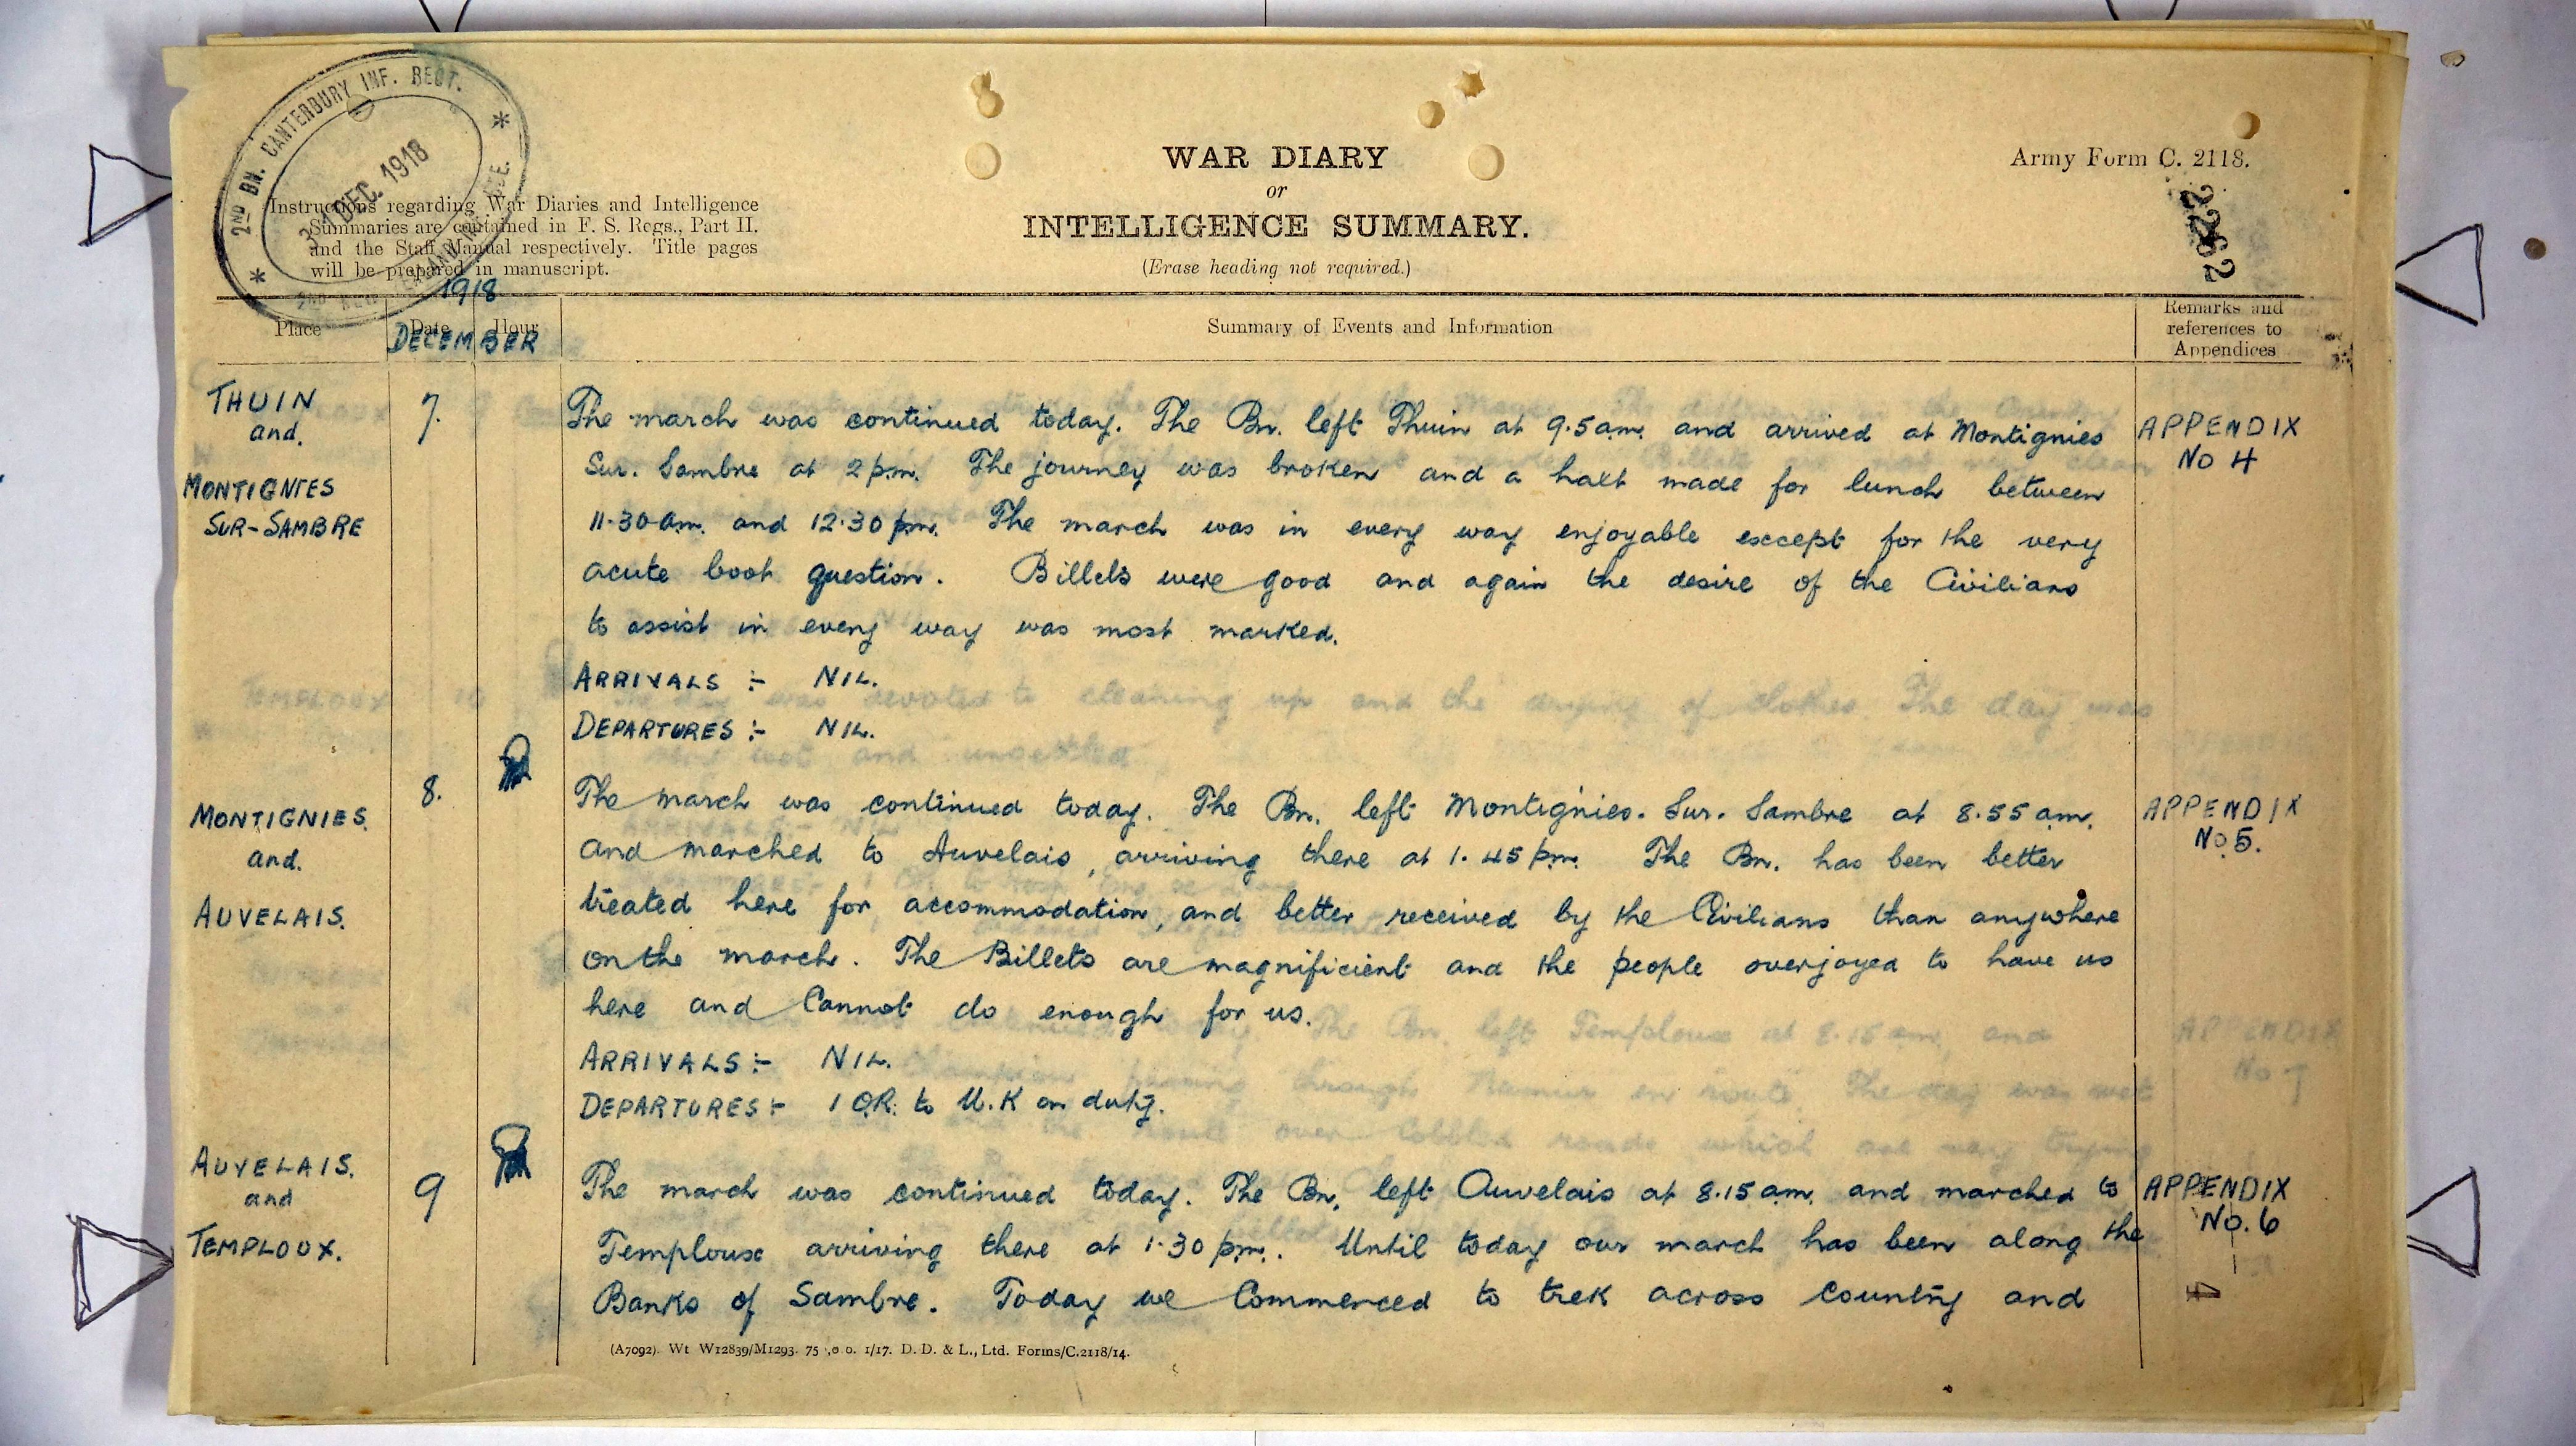 2ND BN. CANTERBURY INF. REGT.
31 DEC. 1918
WAR DIARY
or
INTELLIGENCE SUMMARY.
(Erase heading not required.)
Army Form C. 2118.
Instructions regarding War Diaries and Intelligence
Summaries are contained in F. S. Regs., Part II.
and the Staff Manual respectively. Title pages
will be prepared in manuscript.
1918
Place
Date
Hour
DECEMBER
Summary of Events and Information
Remarks and
references to
Appendices
THUIN
and.
MONTIGNIES
SUR-SAMBRE
7.
The march was continued today. The Bn. left Thuin at 9.5 am. and arrived at Montignies
Sur. Sambre at 2 pm. The journey was broken and a halt made for lunch between
11.30 am. and 12.30 pm. The march was in every way enjoyable except for the very
acute boot question. Billets were good and again the desire of the Civilians
to assist in every way was most marked.
ARRIVALS :- NIL.
DEPARTURES :- NIL.
APPENDIX
No 4
MONTIGNIES.
and.
AUVELAIS.
8.
The march was continued today. The Bn. left Montignies. Sur. Sambre at 8.55 am.
and marched to Auvelais, arriving there at 1.45 pm. The Bn. has been better
treated here for accommodation, and better received by the Civilians than anywhere
on the march. The Billets are magnificient and the people overjoyed to have us
here and Cannot do enough for us.
ARRIVALS :- NIL.
DEPARTURES :- 1 O.R. to U.K on duty.
APPENDIX
No 5.
AUVELAIS.
and
TEMPLOUX.
9
The march was continued today. The Bn. left Auvelais at 8.15 am. and marched to
Temploux arriving there at 1.30 pm. Until today our march has been along the
Banks of Sambre. Today we Commenced to trek across Country and
APPENDIX
No. 6
(A7092). Wt W12839/M1293. 75 ,0 0. 1/17. D. D. & L., Ltd. Forms/C.2118/14.